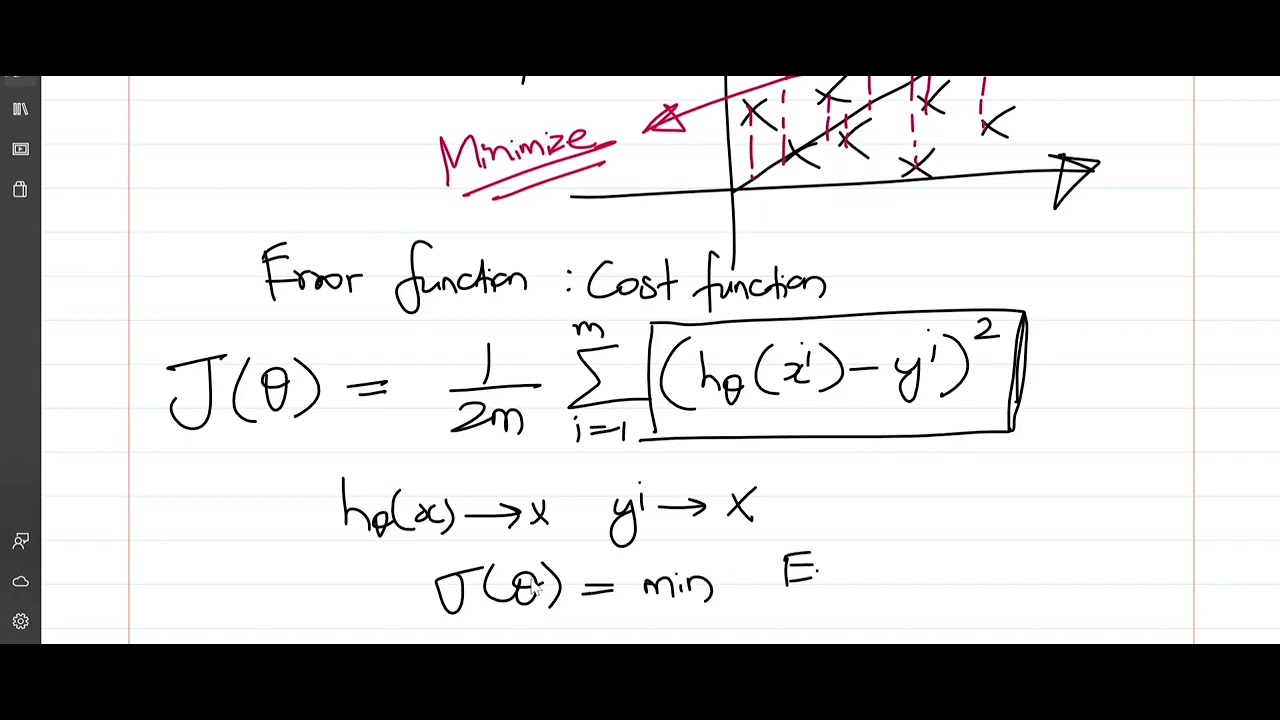 Minimize
Error function : Cost function
J(θ) = 1/2m ∑ᵢ₌₁ᵐ (hθ(xⁱ) – yⁱ)²
hθ(x) → x yⁱ → x
J(θ) = min E